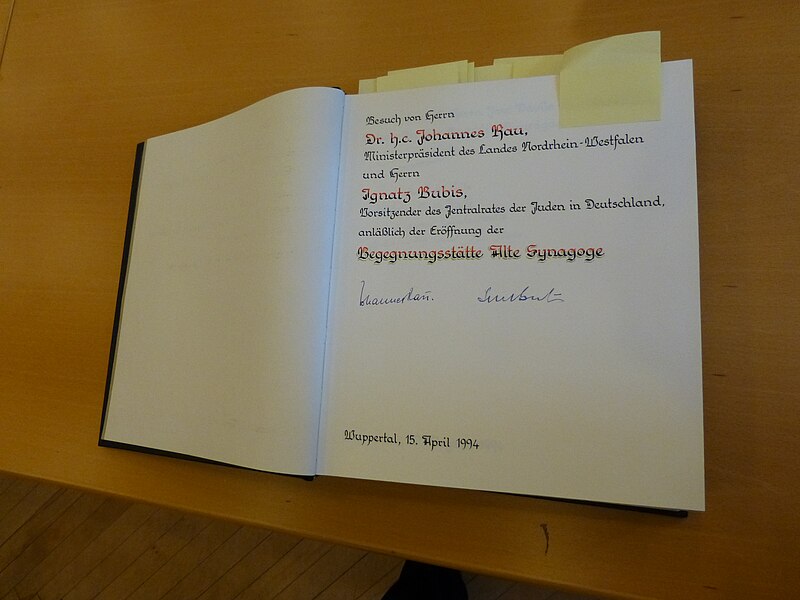 Besuch von Herrn
Dr. h.c. Johannes Rau,
Ministerpräsident des Landes Nordrhein-Westfalen
und Herrn
Ignatz Bubis,
Vorsitzender des Zentralrates der Juden in Deutschland,
anläßlich der Eröffnung der
Begegnungsstätte Alte Synagoge
Johannes Rau.
Wuppertal, 15. April 1994